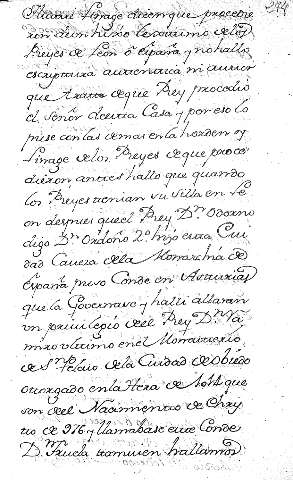 244
linage dicem que procedie
ron de un hixo lexitimo de los
Reyes de Leon ô españa y no hallo
escriptura autentica ni author
que de que Rey procedio
el señor de esta Casa y por eso lo
puse con las demas en la horden y
linage de los Reyes de que proce
dieron antes hallo que quando
los Reyes tenian su silla en Le
on despues que el Rey Dn
digo Dn Ordoño 2º hizo esta Ciu
dad Caveza de la Monarchia de
españa puso Conde en Asturias
que la Governase y hallaran
un privilegio del Rey Dn Ra
miro ultimo en el Monasterio
de Sn Pelaio de la Ciudad de obiedo
otorgado en la Hera de que
son del Nacimiento de Chris
to de 976 y llamabase este Conde
Dn Fruela tamvien hallamos